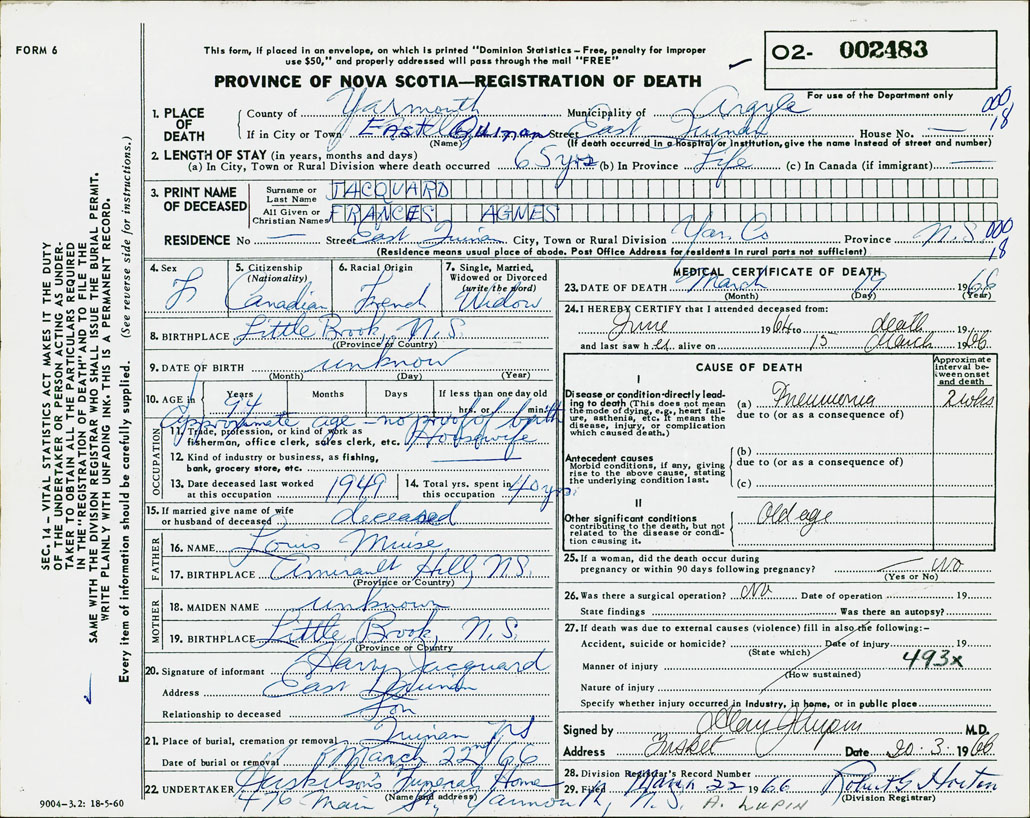 FORM 6
This form, if placed in an envelope, on which is printed "Dominion Statistics – Free, penalty for improper
use $50," and properly addressed will pass through the mail "FREE"
O2- 002483
For use of the Department only
PROVINCE OF NOVA SCOTIA—REGISTRATION OF DEATH
1. PLACE OF DEATH
County of Yarmouth Municipality of Argyle
000 18
If in City or Town East Quinan Street East Quinan House No. —
(Name) (If death occurred in a hospital or institution, give the name instead of street and number)
2. LENGTH OF STAY (in years, months and days)
(a) In City, Town or Rural Division where death occurred 65 yrs (b) In Province Life (c) In Canada (if immigrant) —
3. PRINT NAME OF DECEASED
Surname or Last Name JACQUARD
All Given or Christian Names FRANCES AGNES
RESIDENCE No — Street East Quinan City, Town or Rural Division Yar. Co Province N.S 000 18
(Residence means usual place of abode. Post Office Address for residents in rural parts not sufficient)
4. Sex F
5. Citizenship (Nationality) Canadian
6. Racial Origin French
7. Single, Married, Widowed or Divorced (write the word) Widow
8. BIRTHPLACE Little Brook, N.S.
(Province or Country)
9. DATE OF BIRTH unknow
(Month) (Day) (Year)
10. AGE in Years 94 Months Days If less than one day old hrs. or min.
Approximate age - no proof of birth
OCCUPATION
11. Trade, profession, or kind of work as
fisherman, office clerk, sales clerk, etc. Housewife
12. Kind of industry or business, as fishing,
bank, grocery store, etc.
13. Date deceased last worked at this occupation 1949
14. Total yrs. spent in this occupation 40 yrs
15. If married give name of wife or husband of deceased deceased
FATHER
16. NAME Louis Muise
17. BIRTHPLACE Amirault Hill, NS
(Province or Country)
MOTHER
18. MAIDEN NAME unknown
19. BIRTHPLACE Little Brook, N.S.
(Province or Country)
20. Signature of informant Harry Jacquard
Address East Quinan
Relationship to deceased Son
21. Place of burial, cremation or removal Quinan NS
Date of burial or removal March 22nd 66
22. UNDERTAKER Huskilson's Funeral Home
(Name and address)
476 Main St, Yarmouth, N.S.
9004-3.2: 18-5-60
MEDICAL CERTIFICATE OF DEATH
23. DATE OF DEATH March 19 1966
(Month) (Day) (Year)
24. I HEREBY CERTIFY that I attended deceased from:
June 1964 to death 19
and last saw h er alive on 15 March 1966
CAUSE OF DEATH
Approximate interval between onset and death
I
Disease or condition directly leading to death (This does not mean the mode of dying, e.g., heart failure, asthenia, etc. It means the disease, injury, or complication which caused death.)
(a) Pneumonia 2 wks
due to (or as a consequence of)
Antecedent causes
Morbid conditions, if any, giving rise to the above cause, stating the underlying condition last.
(b)
due to (or as a consequence of)
(c)
II
Other significant conditions contributing to the death, but not related to the disease or condition causing it.
Old age
25. If a woman, did the death occur during
pregnancy or within 90 days following pregnancy? No
(Yes or No)
26. Was there a surgical operation? No Date of operation 19
State findings Was there an autopsy?
27. If death was due to external causes (violence) fill in also the following:–
Accident, suicide or homicide? Date of injury 19
(State which)
493x
Manner of injury
(How sustained)
Nature of injury
Specify whether injury occurred in industry, in home, or in public place
Signed by M.D.
Address Tusket Date 20.3.1966
28. Division Registrar's Record Number
29. Filed March 22 1966 Robert G Horton
(Division Registrar)
A. LUPIN
SEC. 14 – VITAL STATISTICS ACT MAKES IT THE DUTY
OF THE UNDERTAKER OR PERSON ACTING AS UNDER-
TAKER TO OBTAIN ALL THE PARTICULARS REQUIRED
IN THE "REGISTRATION OF DEATH" AND TO FILE THE
SAME WITH THE DIVISION REGISTRAR WHO SHALL ISSUE THE BURIAL PERMIT.
WRITE PLAINLY WITH UNFADING INK. THIS IS A PERMANENT RECORD.
Every item of information should be carefully supplied. (See reverse side for instructions.)